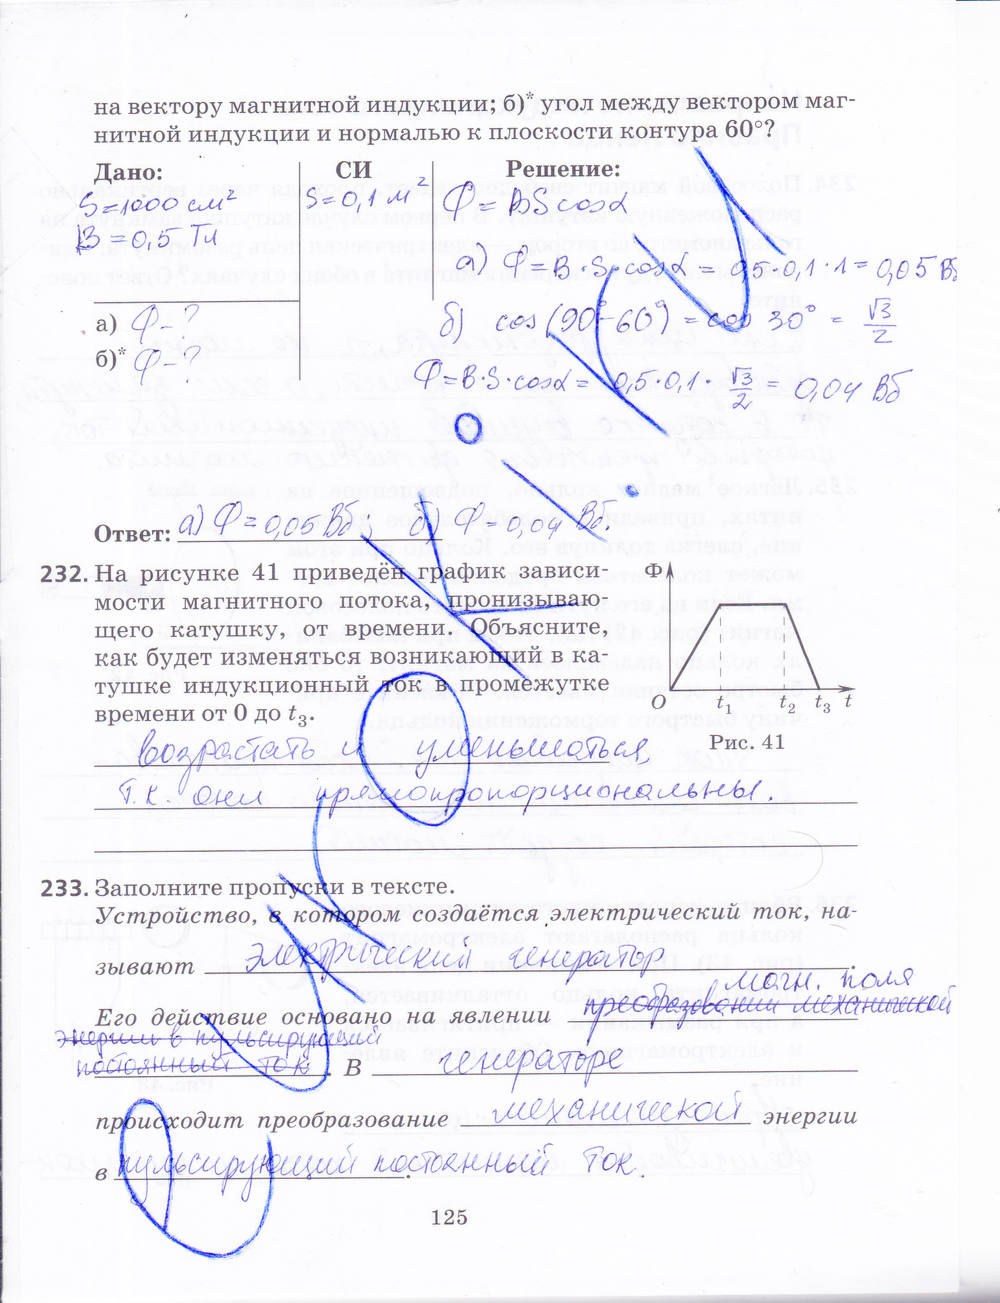 на вектору магнитной индукции; б)* угол между вектором маг-
нитной индукции и нормалью к плоскости контура 60°?
Дано: СИ Решение:
S=1000 см² S=0,1 м² Ф=BS cosα
B=0,5 Тл
а) Ф=B·S·cosα=0,5·0,1·1=0,05 Вб
а) Ф-? б) cos(90°-60°)=cos 30°=√3/2
б)* Ф-? Ф=B·S·cosα=0,5·0,1·√3/2=0,04 Вб
Ответ: а) Ф=0,05 Вб; б) Ф=0,04 Вб.
232. На рисунке 41 приведён график зависи-
мости магнитного потока, пронизываю-
щего катушку, от времени. Объясните,
как будет изменяться возникающий в ка-
тушке индукционный ток в промежутке
времени от 0 до t₃.
Ф
O t₁ t₂ t₃ t
Рис. 41
возрастать и уменьшаться
т.к. они прямопропорциональны.
233. Заполните пропуски в тексте.
Устройство, в котором создаётся электрический ток, на-
зывают электрический генератор.
магн. поля
Его действие основано на явлении преобразовании механической
энергии в пульсирующий
постоянный ток. В генераторе
происходит преобразование механической энергии
в пульсирующий постоянный ток.
125